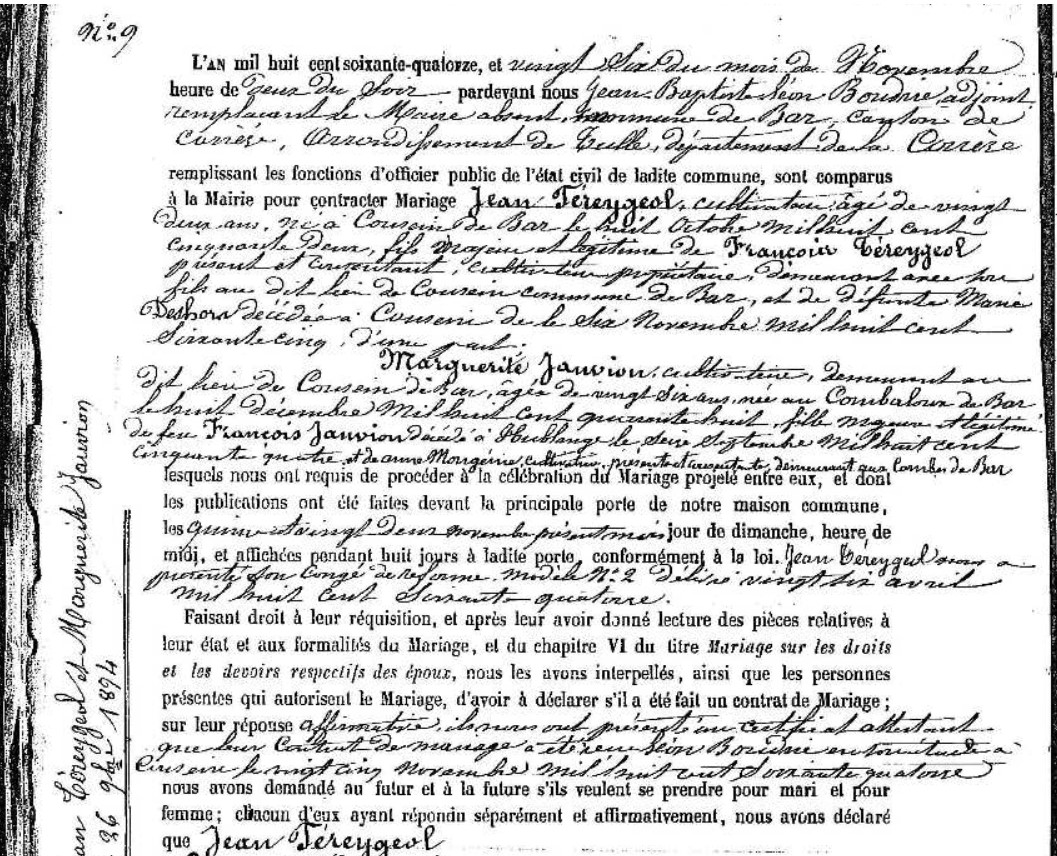 N° 9
L'AN mil huit cent soixante-quatorze, et vingt Six du mois de Novembre
heure de Deux du Soir pardevant nous Jean Baptiste Léon Boudrie, adjoint
remplaçant le Maire absent, commune de Bar, canton de
Corrèze, Arrondissement de Tulle, département de la Corrèze
remplissant les fonctions d'officier public de l'état civil de ladite commune, sont comparus
à la Mairie pour contracter Mariage Jean Téreygeol, cultivateur, âgé de vingt
deux ans, né à Cousein de Bar le huit Octobre Mil huit cent
cinquante deux, fils Majeur et légitime de François Téreygeol
présent et consentant, cultivateur propriétaire, demeurant avec son
fils au dit lieu de Cousein commune de Bar, et de défunte Marie
Deshors décédée à Cousein de le Six Novembre mil huit cent
Soixante cinq, d'une part.
Marguerite Janvion, cultivatrice, demeurant au
dit lieu de Cousein de Bar, âgée de vingt Six ans, née au Combaloux de Bar
le huit décembre Mil huit cent quarante huit, fille majeure et légitime
de feu François Janvion décédé à le Seize Septembre Mil huit cent
cinquante quatre, et de anne cultivatrice, présente et consentante, demeurant aux de Bar
lesquels nous ont requis de procéder à la célébration du Mariage projeté entre eux, et dont
les publications ont été faites devant la principale porte de notre maison commune,
les quinze et vingt Deux novembre présent mois jour de dimanche, heure de
midi, et affichées pendant huit jours à ladite porte, conformément à la loi. Jean Téreygeol nous a
présenté Son Congé de réforme Modèle N° 2 Délivré vingt six avril
Mil huit Cent Soixante quatorze.
Faisant droit à leur réquisition, et après leur avoir donné lecture des pièces relatives à
leur état et aux formalités du Mariage, et du chapitre VI du titre Mariage sur les droits
et les devoirs respectifs des époux, nous les avons interpellés, ainsi que les personnes
présentes qui autorisent le Mariage, d'avoir à déclarer s'il a été fait un contrat de Mariage ;
sur leur réponse affirmative, ils nous ont présenté un certificat attestant
que leur Contrat de mariage a été reçu Léon Boudrie à
le vingt cinq Novembre Mil huit cent Soixante quatorze
nous avons demandé au futur et à la future s'ils veulent se prendre pour mari et pour
femme ; chacun d'eux ayant répondu séparément et affirmativement, nous avons déclaré
que Jean Téreygeol
Jean Téreygeol et Marguerite Janvion
26 9bre 1874